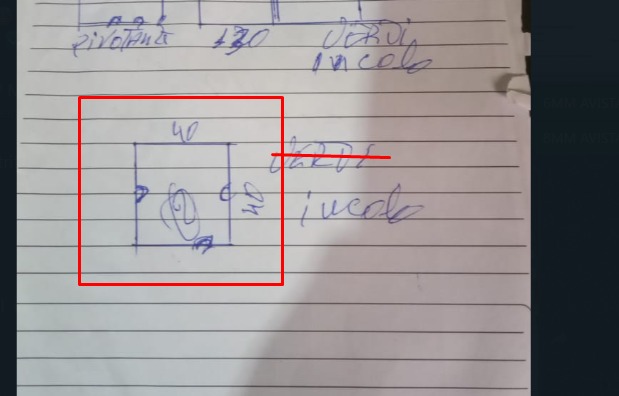 PIVOTANTE 130 VERDI
incolo
40
40
VERDI
incolo